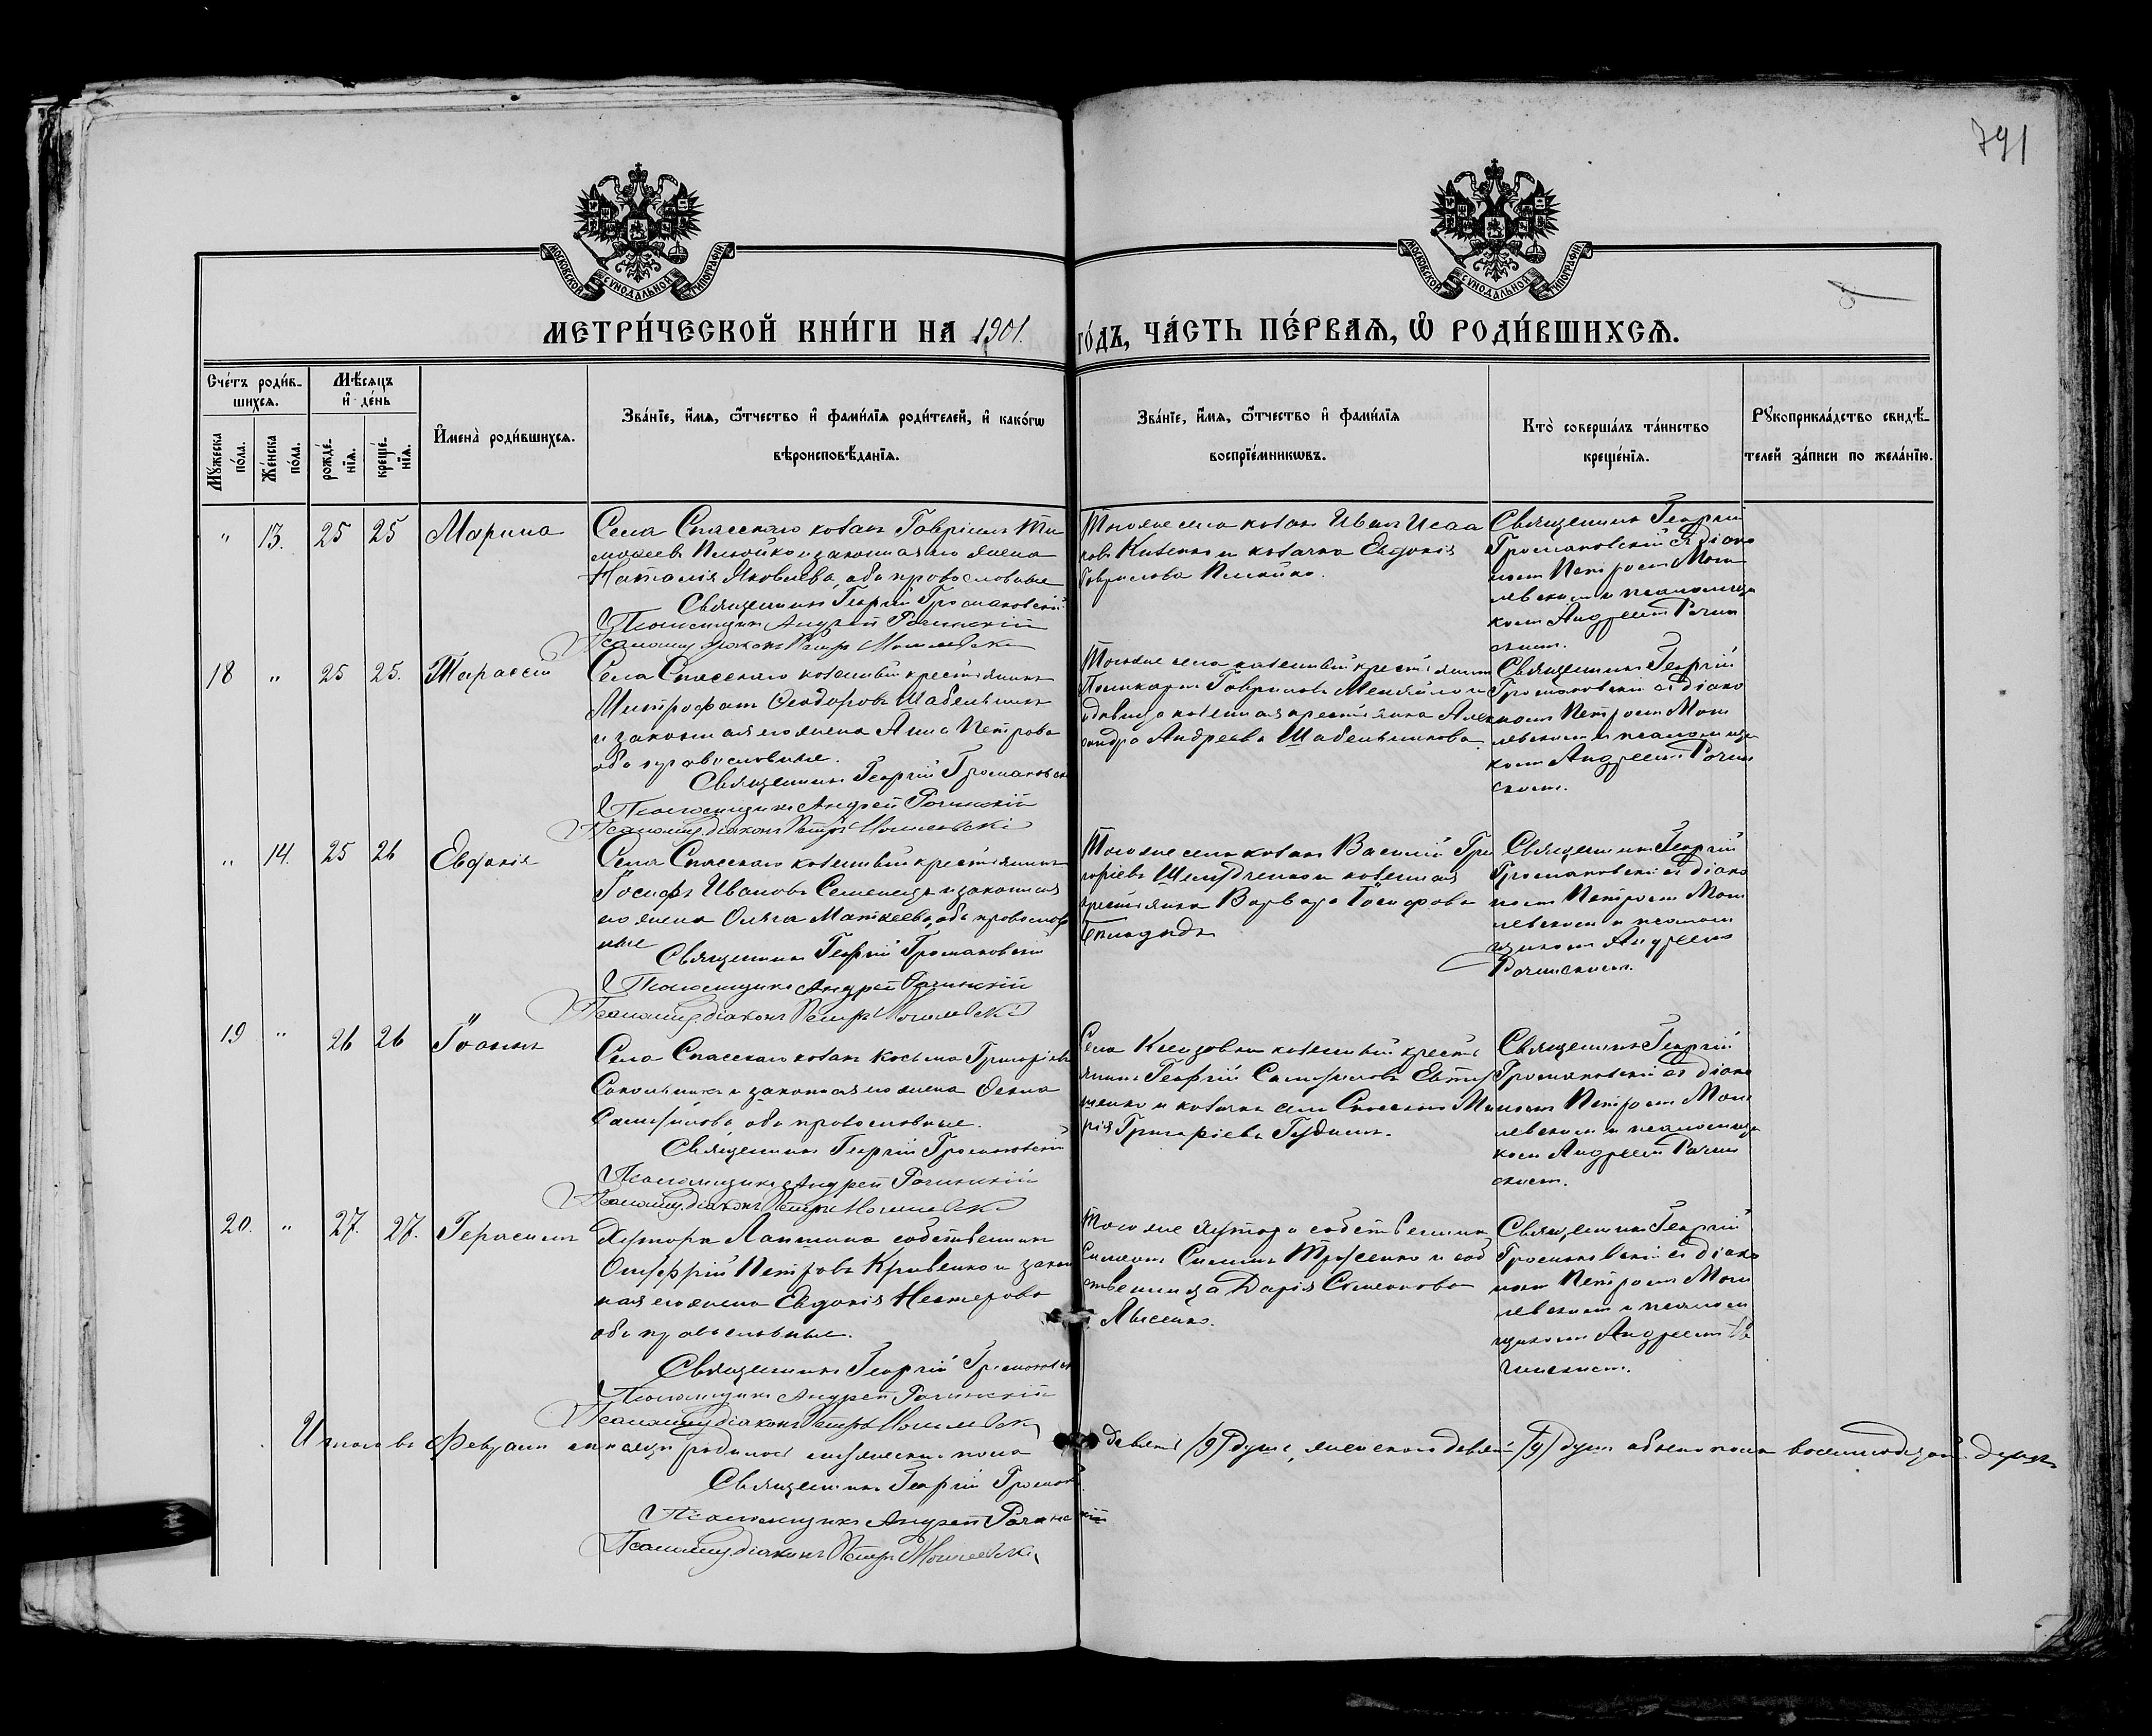 791
МОСКОВСКОЙ СУНОДАЛЬНОЙ ТИПОГРАФІИ
МОСКОВСКОЙ СУНОДАЛЬНОЙ ТИПОГРАФІИ
МЕТРИ́ЧЕСКОЙ КНИ́ГИ НА 1901. ГО́ДЪ, ЧА́СТЬ ПЕ́РВАѦ, Ѿ РОДИ́ВШИХСѦ.
Счётъ роди́в-
шихсѧ.
Мѣ́сѧцъ
и҆ де́нь
Мꙋ́жеска
по́ла.
Же́нска
по́ла.
рожде́-
нїѧ.
креще́-
нїѧ.
И҆мена̀ роди́вшихсѧ.
Зва́нїе, и҆́мѧ, ѻ҆́тчество и҆ фами́лїѧ роди́телей, и҆ како́гѡ
вѣроисповѣ́данїѧ.
Зва́нїе, и҆́мѧ, ѻ҆́тчество и҆ фами́лїѧ
воспрїе́мникѡвъ.
Кто̀ соверша́лъ та́инство
креще́нїѧ.
Рꙋкоприкла́дство свидѣ́-
телей за́писи по жела́нїю.
" 13. 25 25 Марина
Села Спасскаго козакъ Гавріилъ Ти
мофеевъ и законная его жена
Наталія Яковлева, оба православные
Священникъ Георгій Громаковскій
Псаломщикъ Андрей Рачинскій
Псаломщ. діаконъ Петръ Могилевскій
Того же села козакъ Иванъ Исаа
ковъ и козачка Евдокія
Гаврилова
Священникъ Георгій
Громаковскій съ діако
номъ Петромъ Моги
левскимъ и псаломщи
комъ Андреемъ Рачин
скимъ.
18 " 25 25. Тарасій
Села Спасскаго козенный крестьянинъ
Митрофанъ Ѳеодоровъ Шабельникъ
и законная его жена Анна Петрова
оба православные.
Священникъ Георгій Громаковскій
Псаломщикъ Андрей Рачинскій
Псаломщ. діаконъ Петръ Могилевскій
Того же села козенный крестьянинъ
Поликарпъ Гавриловъ и
вдовица козенная крестьянка Алек
сандра Андреева Шабельникова.
Священникъ Георгій
Громаковскій съ діако
номъ Петромъ Моги
левскимъ и псаломщи
комъ Андреемъ Рачин
скимъ.
" 14. 25 26 Евфокія
Села Спасскаго козенный крестьянинъ
Іосифъ Ивановъ Семенецъ и законная
его жена Ольга Матвеева, оба православ
ные
Священникъ Георгій Громаковскій
Псаломщикъ Андрей Рачинскій
Псаломщ. діаконъ Петръ Могилевскій
Того же села козакъ Василій Гри
горіевъ и козенная
крестьянка Варвара Іосифова
Священникъ Георгій
Громаковскій съ діако
номъ Петромъ Моги
левскимъ и псалом
щикомъ Андреемъ
Рачинскимъ.
19 " 26 26 Іоаннъ
Села Спасскаго козакъ Косьма Григоріевъ
и законная его жена
оба православные.
Священникъ Георгій Громаковскій
Псаломщикъ Андрей Рачинскій
Псаломщ. діаконъ Петръ Могилевскій
Села козенный кресть
янинъ Георгій Евту
шенко и козачка села Спасскаго Ма
рія Григоріева Гудимъ.
Священникъ Георгій
Громаковскій съ діако
номъ Петромъ Моги
левскимъ и псаломщи
комъ Андреемъ Рачин
скимъ.
20. " 27. 27. Герасимъ
Хутора Лапшина собственникъ
Онуфрій Петровъ Кривенко и закон
ная его жена Евдокія Нестерова
оба православные.
Священникъ Георгій Громаковскій
Псаломщикъ Андрей Рачинскій
Псаломщ. діаконъ Петръ Могилевскій
Того же хутора собственникъ
и соб
ственница Дарія Симеонова
Лысенко.
Священникъ Георгій
Громаковскій съ діако
номъ Петромъ Моги
левскимъ и псалом
щикомъ Андреемъ Ра
чинскимъ.
Итого въ Феврале месяце родилось мужеска пола девять (9) душъ, женскаго девять (9) душъ обоего пола восемнадцать душъ
Священникъ Георгій Громаков
Псаломщикъ Андрей Рачинскій
Псаломщ. діаконъ Петръ Могилевскій